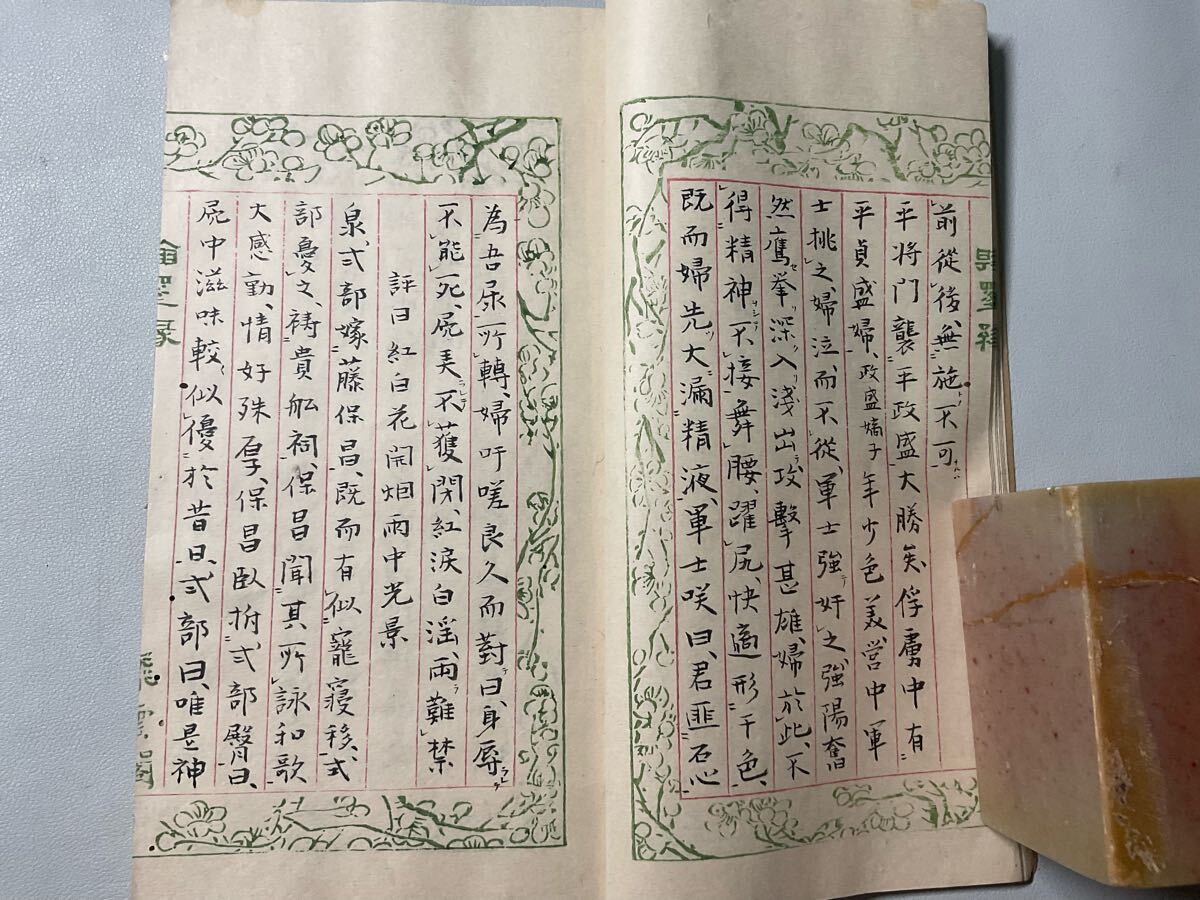 前從後無施不可
平将門襲平政盛大勝矣俘虜中有
平貞盛婦、政盛嫡子年少色美営中軍
士挑之、婦泣而不從、軍士強奸之、強陽奮
然鷹拳深入淺出攻擊甚雄、婦於此、不
得精神不接舞腰、躍尻、快適形于色、
既而婦先大漏精液、軍士咲曰、君匪石心
為吾尿所轉、婦吁嗟良久而對曰、身辱
不能死、尻美不獲閉、紅淚白淫、両難禁
評曰紅白花開烟雨中光景
泉式部嫁藤保昌、既而有似寵寝移、式
部憂之、祷貴船祠、保昌聞其所詠和歌
大感動、情好殊厚、保昌臥拊式部臀曰、
尻中滋味較似優於昔日、式部曰、唯是神